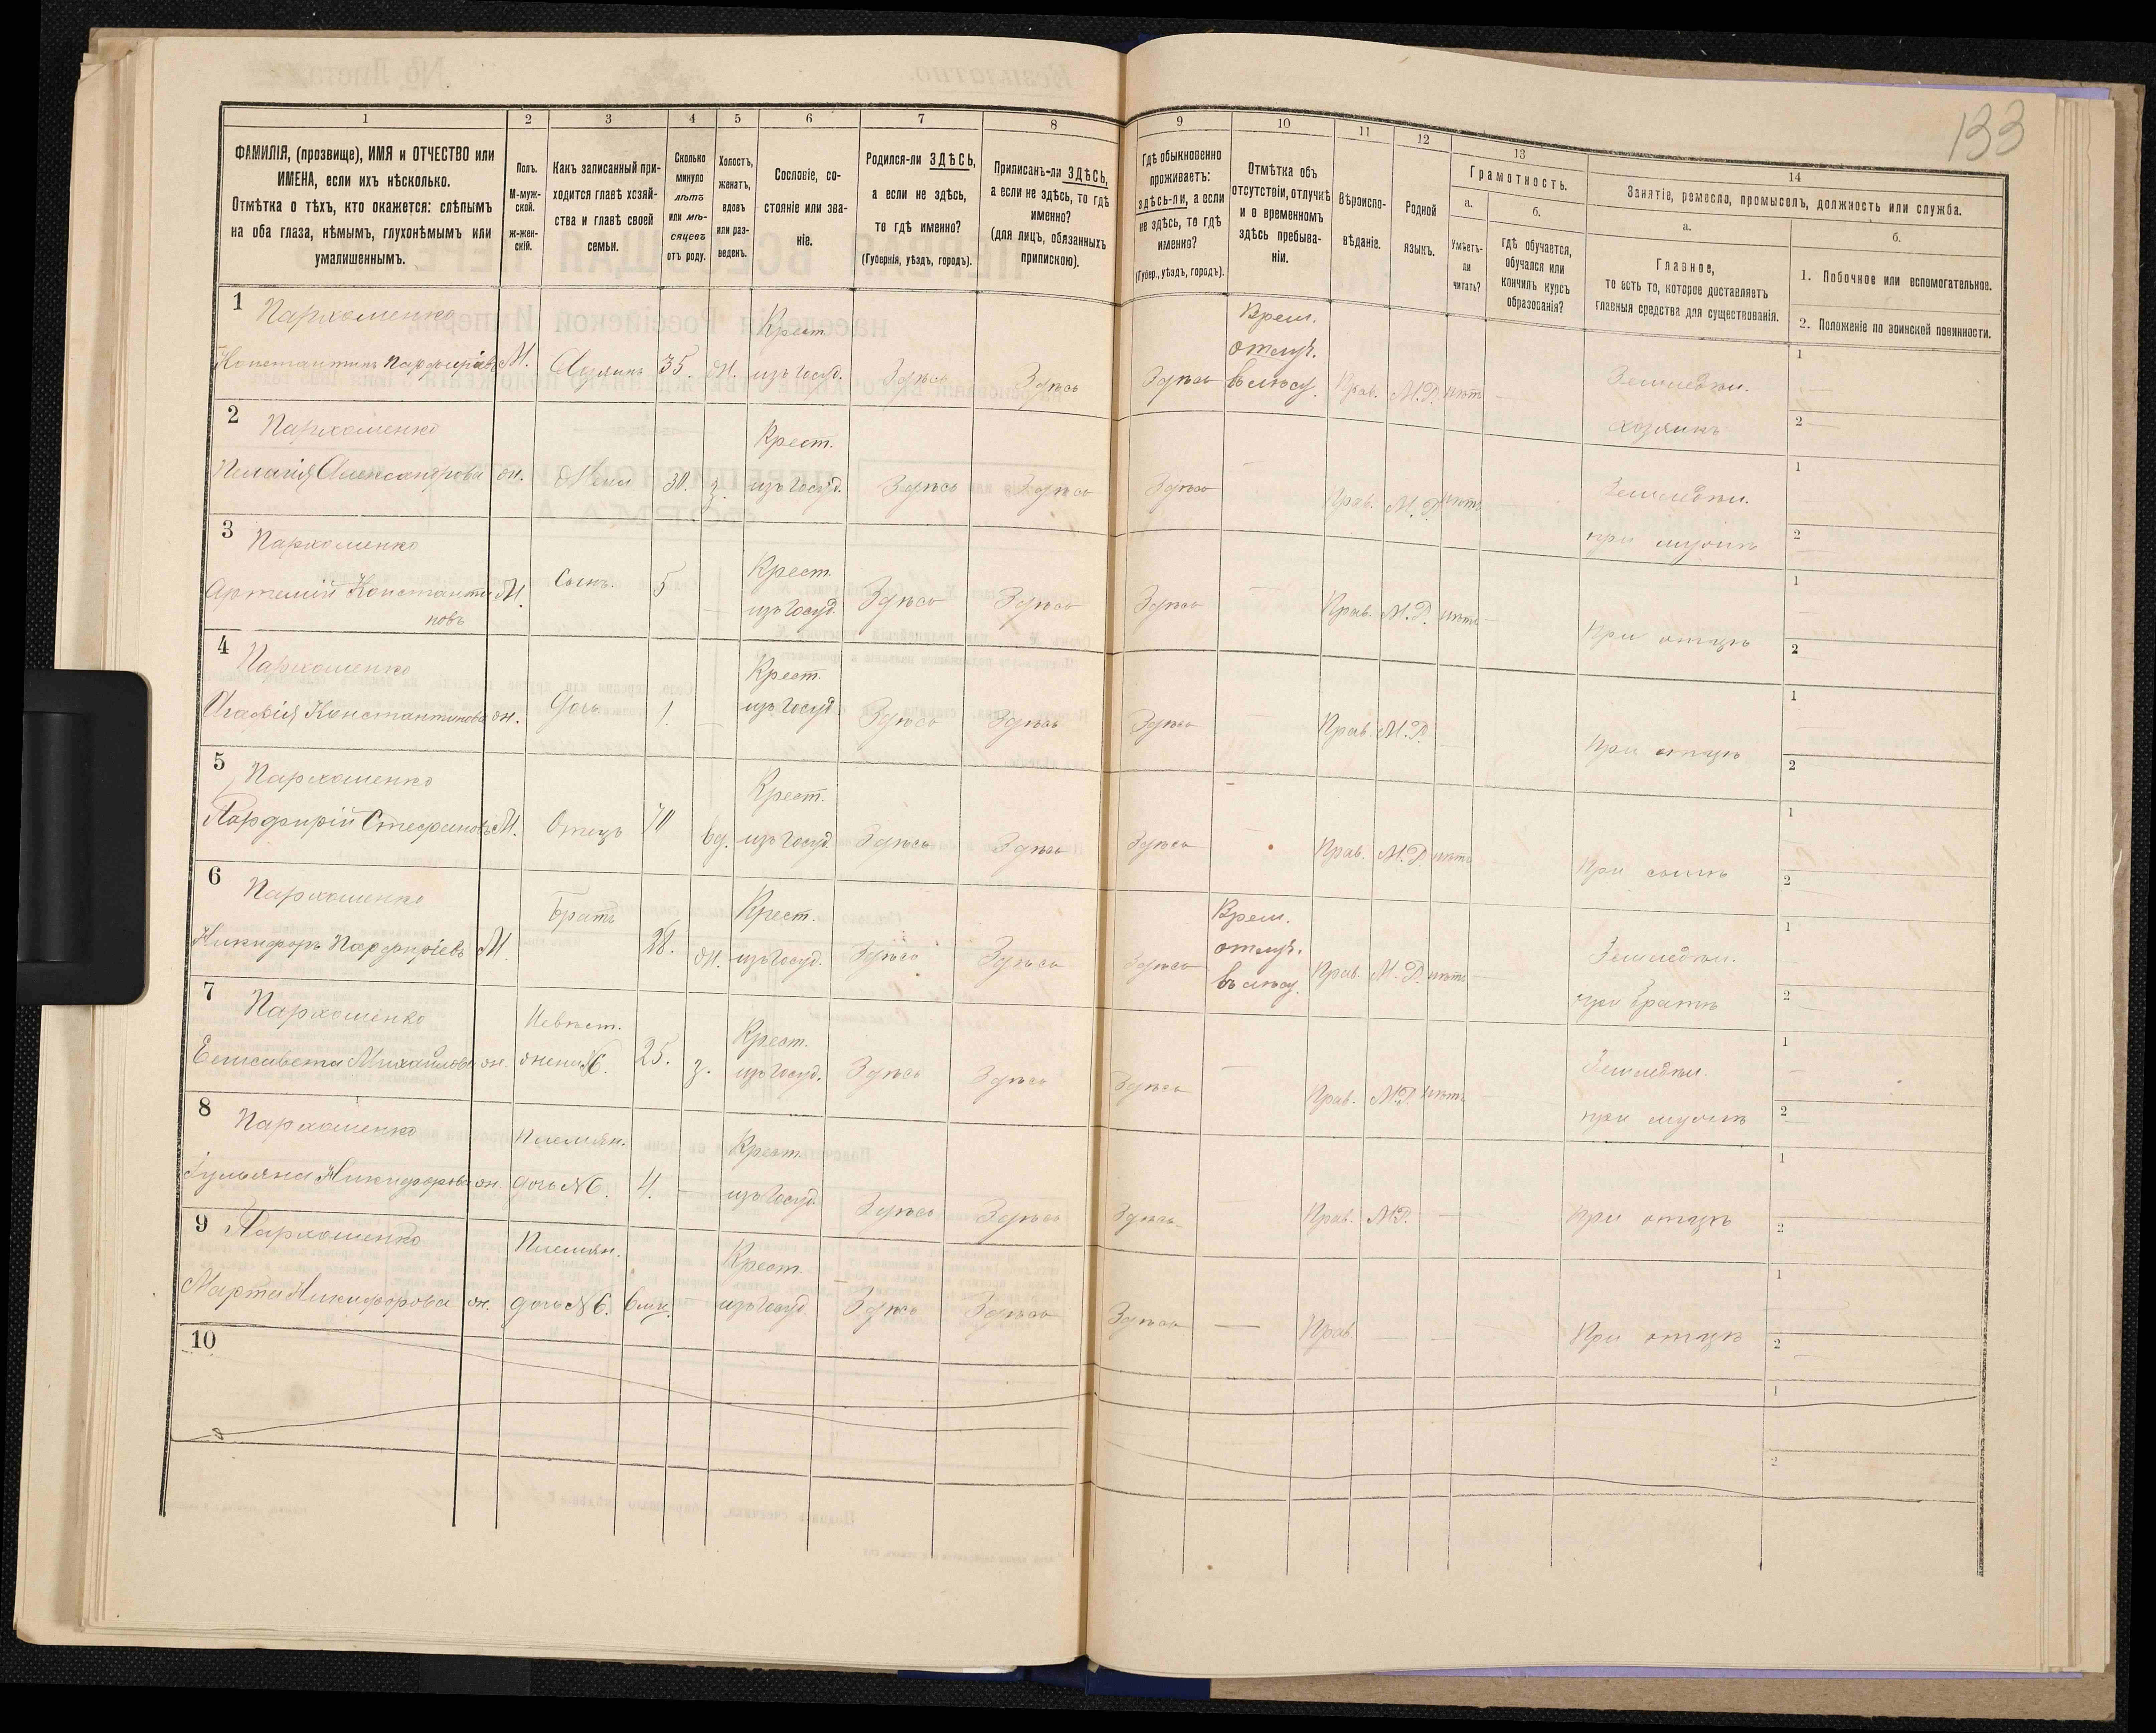 133
1
2
3
4
5
6
7
8
9
10
11
12
13
14
ФАМИЛІЯ, (прозвище), ИМЯ и ОТЧЕСТВО или
ИМЕНА, если ихъ нѣсколько.
Отмѣтка о тѣхъ, кто окажется: слѣпымъ
на оба глаза, нѣмымъ, глухонѣмымъ или
умалишеннымъ.
Полъ.
М-муж-
ской.
ж-жен-
скій.
Какъ записанный при-
ходится главѣ хозяй-
ства и главѣ своей
семьи.
Сколько
минуло
лѣтъ
или мѣ-
сяцевъ
отъ роду.
Холостъ,
женатъ,
вдовъ
или раз-
веденъ.
Сословіе, со-
стояніе или зва-
ніе.
Родился-ли ЗДѢСЬ,
а если не здѣсь,
то гдѣ именно?
(Губернія, уѣздъ, городъ).
Приписанъ-ли ЗДѢСЬ,
а если не здѣсь, то гдѣ
именно?
(для лицъ, обязанныхъ
припискою).
Гдѣ обыкновенно
проживаетъ:
здѣсь-ли, а если
не здѣсь, то гдѣ
именно?
(Губер., уѣздъ, городъ).
Отмѣтка объ
отсутствіи, отлучкѣ
и о временномъ
здѣсь пребыва-
ніи.
Вѣроиспо-
вѣданіе.
Родной
языкъ.
Грамотность.
а.
Умѣетъ-
ли
читать?
б.
гдѣ обучается,
обучался или
кончилъ курсъ
образованія?
Занятіе, ремесло, промыселъ, должность или служба.
а.
Главное,
то есть то, которое доставляетъ
главныя средства для существованія.
б.
1. Побочное или вспомогательное.
2. Положеніе по воинской повинности.
1
Пархоменко
Константинъ Парфиріевъ М. Хозяинъ 35. ж. Крест. изъ Госуд. Здѣсь Здѣсь Здѣсь Врем. отлуч. въ лѣсу. Прав. М.Р. нѣтъ — Земледѣл. хозяинъ
1 —
2 —
2
Пархоменко
Пелагія Александрова ж. Жена 30. з. Крест. изъ Госуд. Здѣсь Здѣсь Здѣсь — Прав. М.Р. нѣтъ Земледѣл. при мужѣ
1
2
3
Пархоменко
Артемій Константиновъ М. Сынъ. 5 — Крест. изъ Госуд. Здѣсь Здѣсь Здѣсь — Прав. М.Р. нѣтъ — При отцѣ
1
2
4
Пархоменко
Агафія Константинова ж. Дочь 1. — Крест. изъ Госуд. Здѣсь Здѣсь Здѣсь — Прав. М.Р. — При отцѣ
1
2
5
Пархоменко
Парфирій Стефановъ М. Отецъ 70 вд. Крест. изъ Госуд. Здѣсь Здѣсь Здѣсь — Прав. М.Р. нѣтъ При сынѣ
1
2
6
Пархоменко
Никифоръ Парфиріевъ М. Братъ 28. ж. Крест. изъ Госуд. Здѣсь Здѣсь Здѣсь Врем. отлуч. въ лѣсу. Прав. М.Р. нѣтъ — Земледѣл. при братѣ
1
2
7
Пархоменко
Елисавета Михайлова ж. Невѣст. жена №6. 25. з. Крест. изъ Госуд. Здѣсь Здѣсь Здѣсь — Прав. М.Р. нѣтъ — Земледѣл. при мужѣ
1 —
2 —
8
Пархоменко
Іульяна Никифорова ж. Племян. дочь №6. 4. — Крест. изъ Госуд. Здѣсь Здѣсь Здѣсь Прав. М.Р. — При отцѣ
1
2
9
Пархоменко
Марта Никифорова ж. Племян. дочь №6. 6 мн. — Крест. изъ Госуд. Здѣсь Здѣсь Здѣсь — Прав. — — При отцѣ
1
2
10
1
2